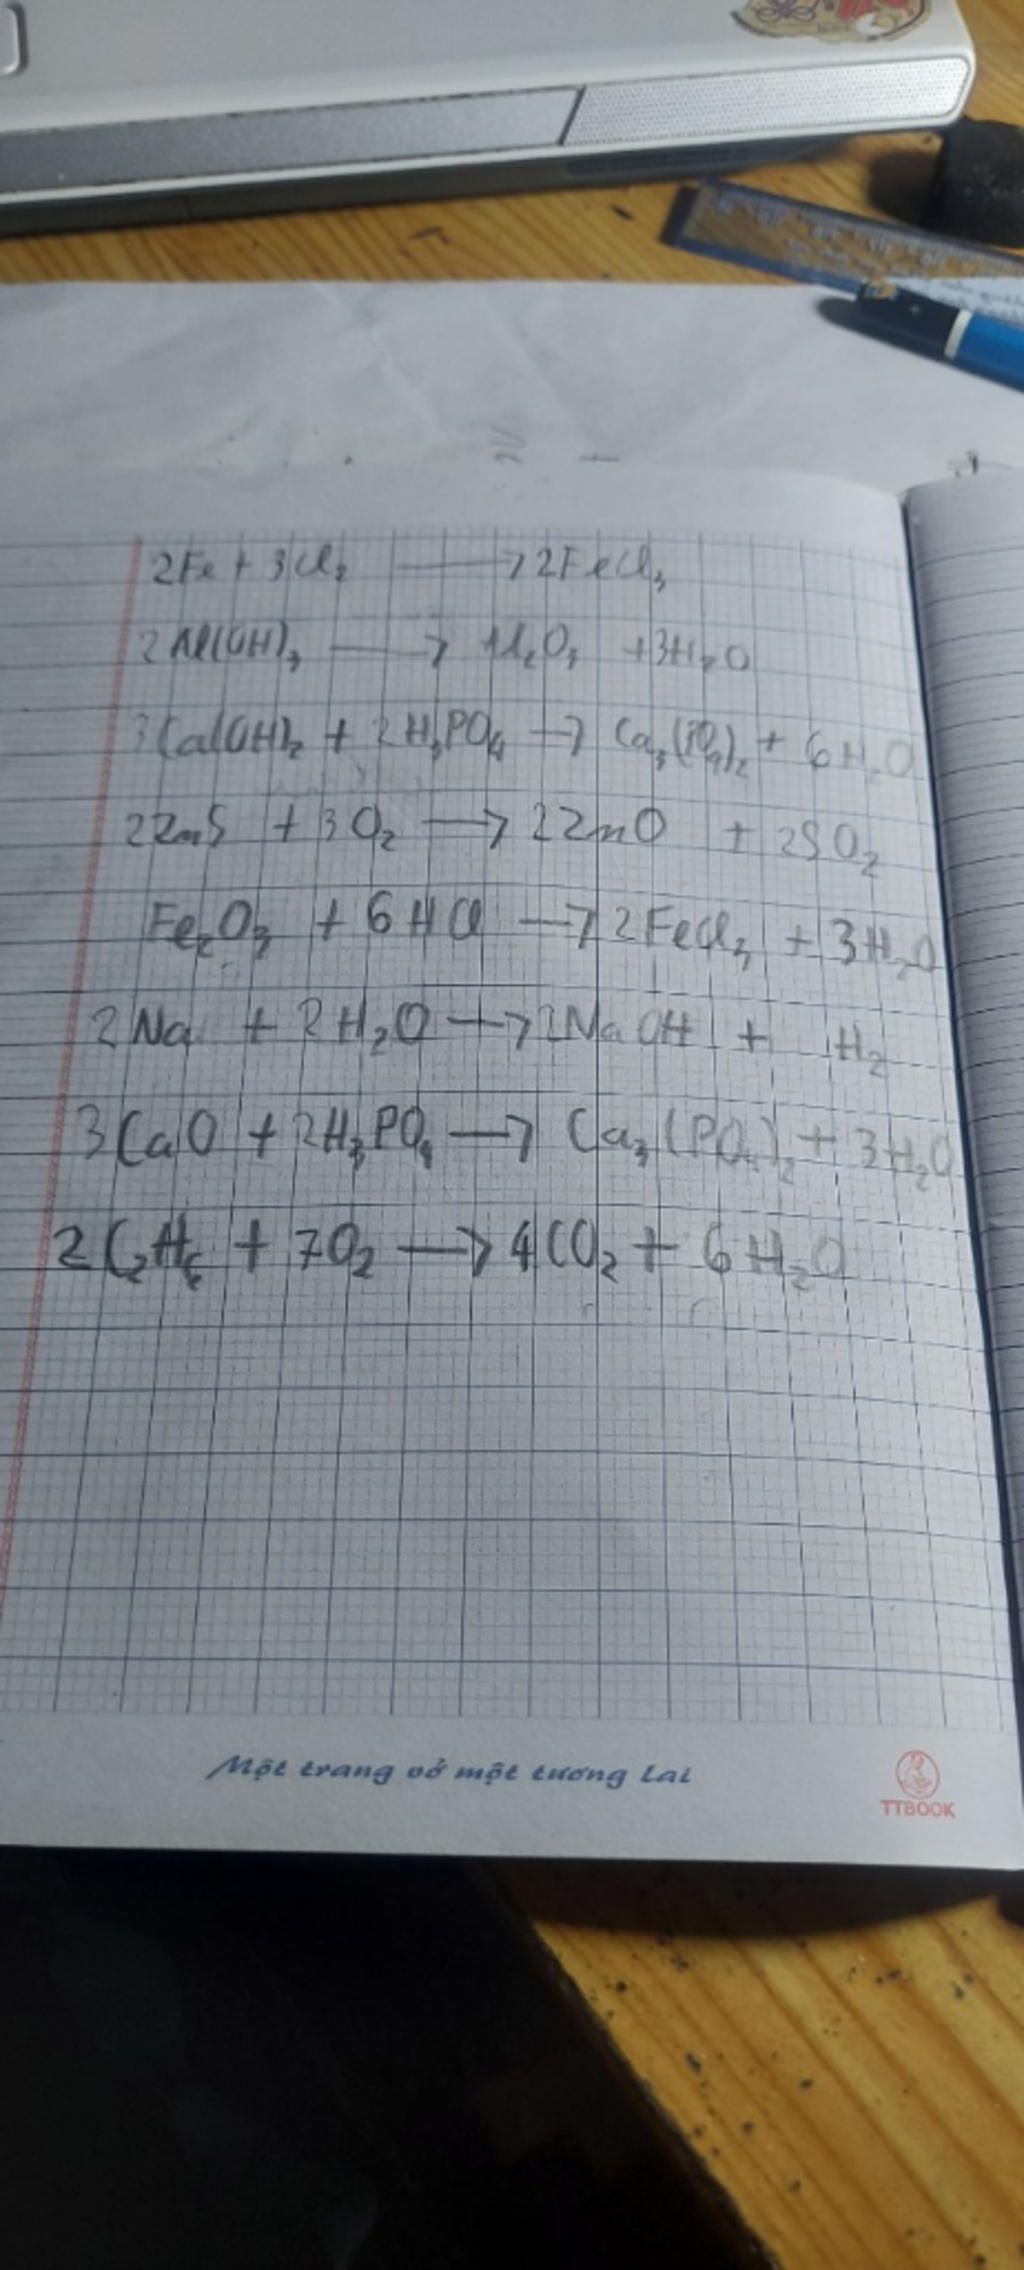 2Fe + 3Cl₂ ⟶ 2FeCl₃
2Al(OH)₃ ⟶ Al₂O₃ + 3H₂O
3Ca(OH)₂ + 2H₃PO₄ → Ca₃(PO₄)₂ + 6H₂O
2ZnS + 3O₂ ⟶ 2ZnO + 2SO₂
Fe₂O₃ + 6HCl ⟶ 2FeCl₃ + 3H₂O
2Na + 2H₂O ⟶ 2NaOH + H₂
3CaO + 2H₃PO₄ ⟶ Ca₃(PO₄)₂ + 3H₂O
2C₂H₆ + 7O₂ ⟶ 4CO₂ + 6H₂O
Một trang vở một tương lai
TTBOOK